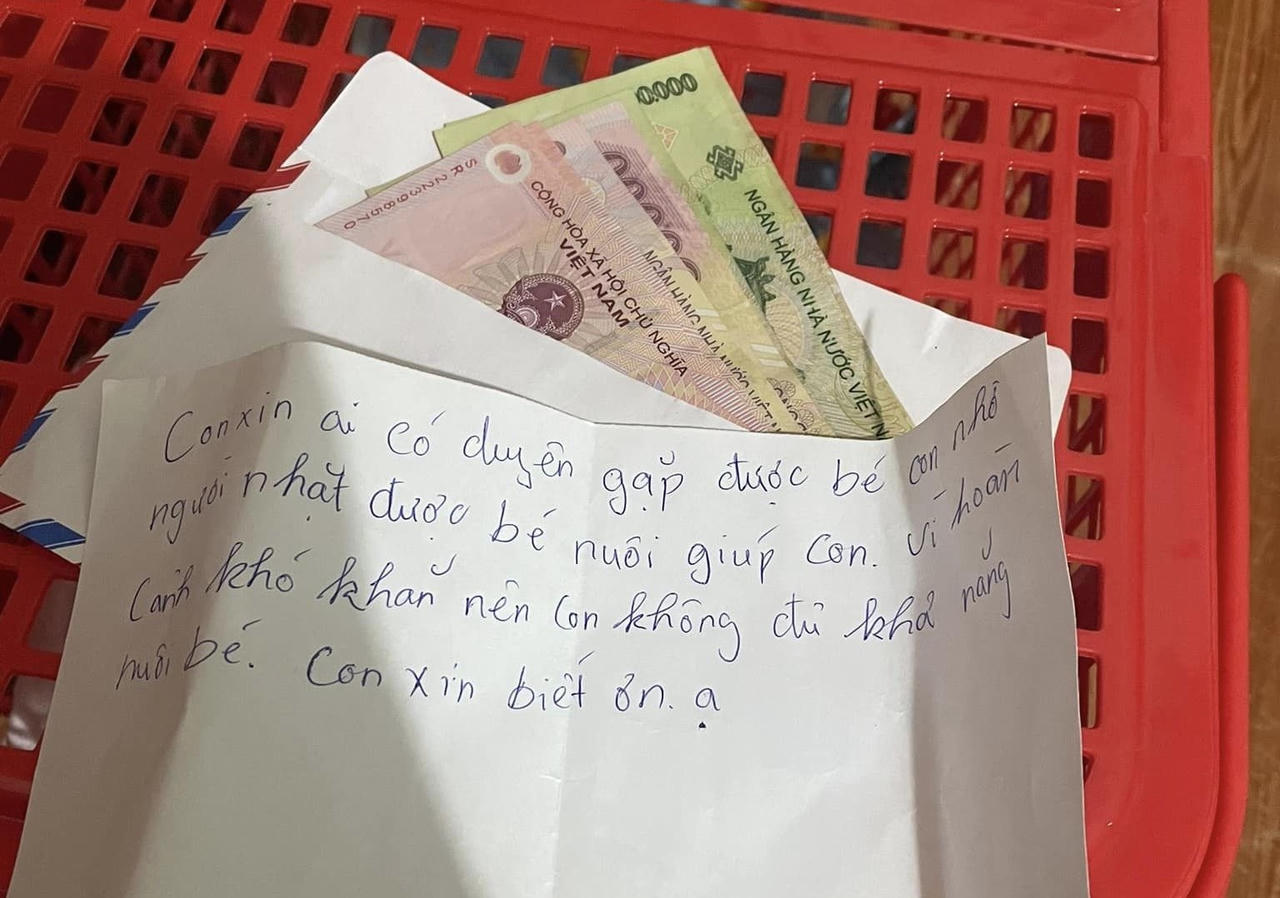 0.000
NGÂN HÀNG NHÀ NƯỚC VIỆT N
SR 22398570
CỘNG HÒA XÃ HỘI CHỦ NGHĨA
VIỆT NAM
NGÂN HÀNG NHÀ NƯỚC VIỆT
Con xin ai có duyên gặp được bé con nhờ
người nhặt được bé nuôi giúp con. Vì hoàn
cảnh khó khăn nên con không đủ khả năng
nuôi bé. Con xin biết ơn. ạ